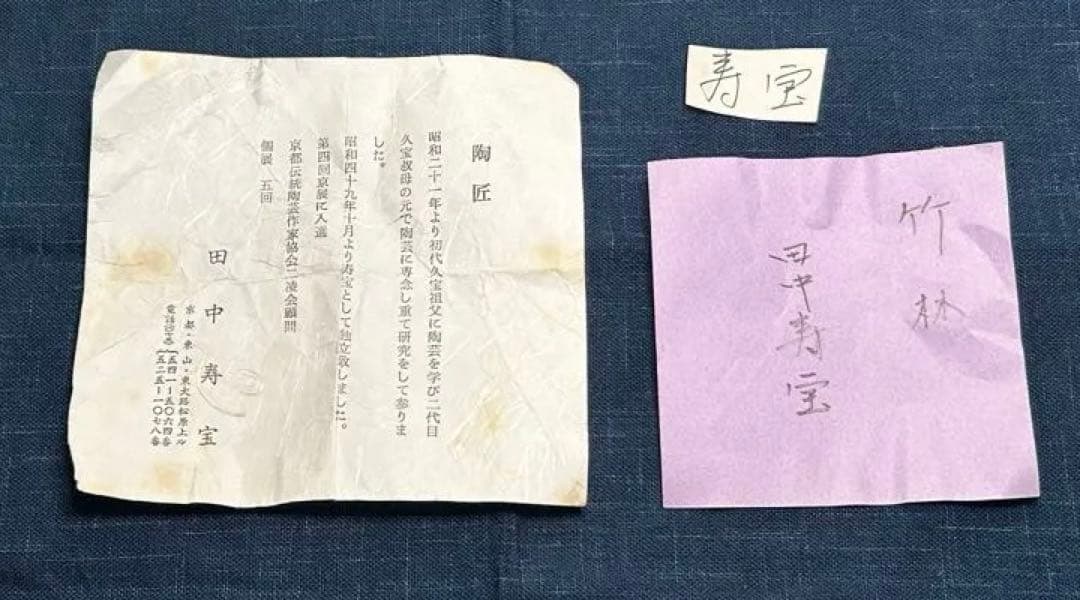 陶匠
昭和二十一年より初代久宝祖父に陶芸を学び二代目
久宝叔母の元で陶芸に専念し重て研究をして参りま
した。
昭和四十九年十月より寿宝として独立致しました。
第四回京展に入選
京都伝統陶芸作家協会二凌会顧問
個展 五回
田中寿宝
京都・東山・東大路松原上ル
五四一―五〇六四番
五二五―一〇七八番
寿宝
竹林
田中寿宝